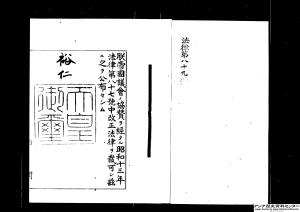 法律第八十九
朕帝國議會ノ協贊ヲ經タル昭和十三年
法律第八十七號中改正法律ヲ裁可シ茲
ニ之ヲ公布セシム
裕仁
天皇
御璽
アジア歴史資料センター